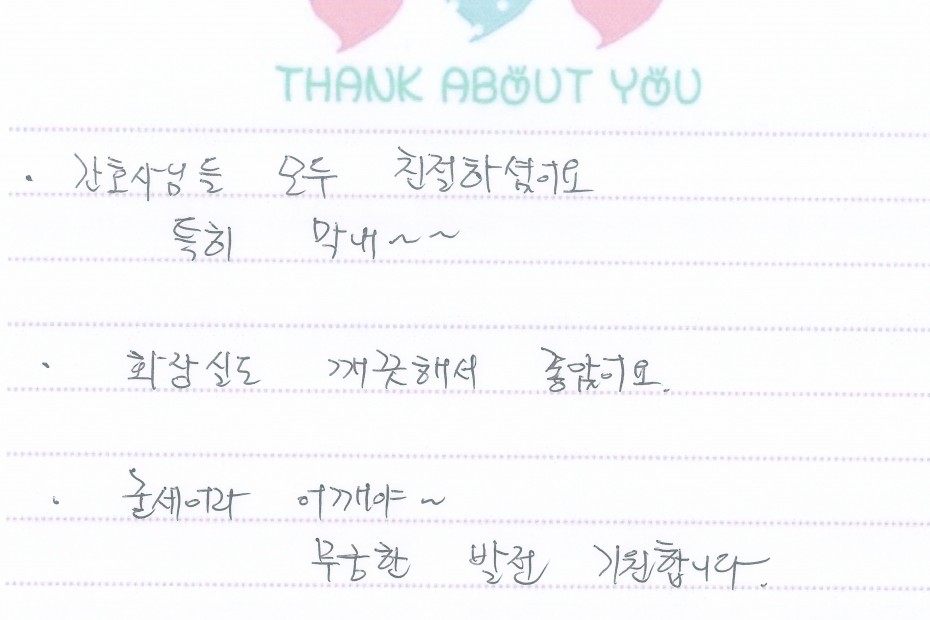 THANK ABOUT YOU
· 간호사님들 모두 친절하셨어요
특히 막내~~
· 화장실도 깨끗해서 좋았어요.
· 굳세어라 어깨야~
무궁한 발전 기원합니다.